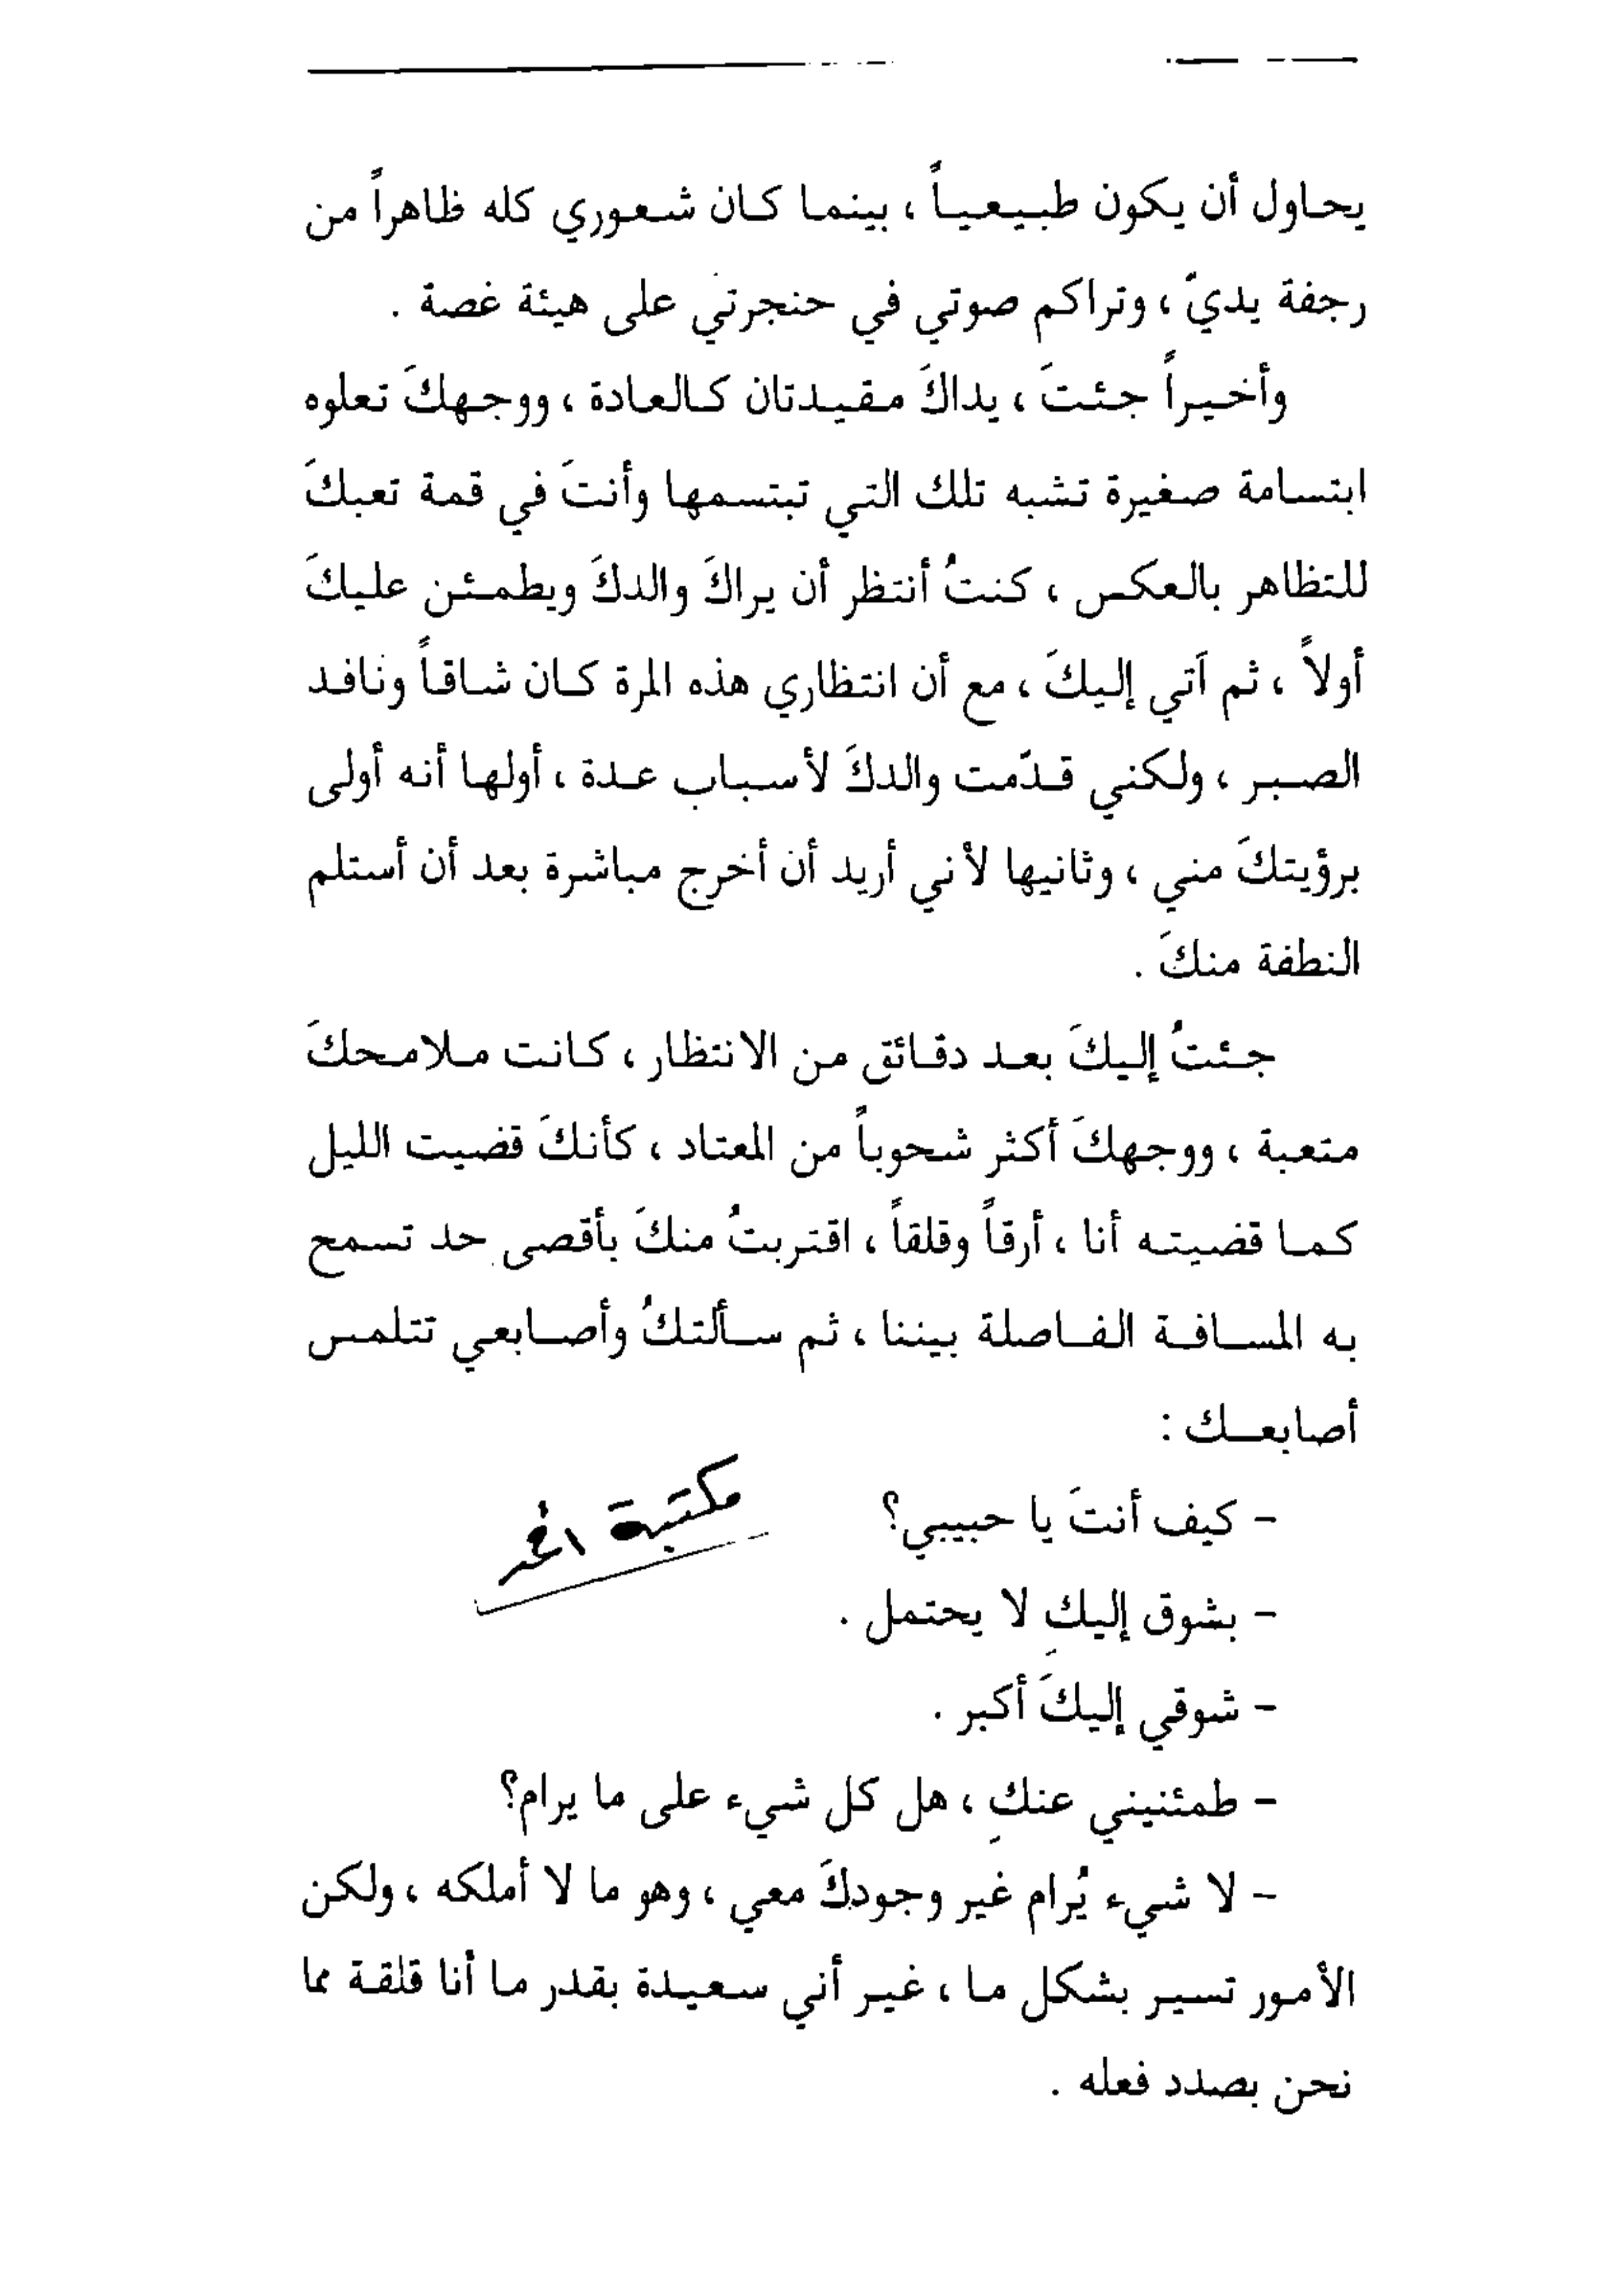 يحاول أن يكون طبيعياً ، بينما كان شعوري كله ظاهراً من
رجفة يديّ ، وتراكم صوتي في حنجرتي على هيئة غصة .
وأخيراً جئتَ ، يداكَ مقيدتان كالعادة ، ووجهكَ تعلوه
ابتسامة صغيرة تشبه تلك التي تبتسمها وأنتَ في قمة تعبكَ
للتظاهر بالعكس ، كنتُ أنتظر أن يراكَ والدكَ ويطمئن عليكَ
أولاً ، ثم آتي إليكَ ، مع أن انتظاري هذه المرة كان شاقاً ونافد
الصبر ، ولكني قدّمت والدكَ لأسباب عدة ، أولها أنه أولى
برؤيتكَ مني ، وثانيها لأني أريد أن أخرج مباشرة بعد أن أستلم
النطفة منكَ .
جئتُ إليكَ بعد دقائق من الانتظار ، كانت ملامحكَ
متعبة ، ووجهكَ أكثر شحوباً من المعتاد ، كأنكَ قضيت الليل
كما قضيته أنا ، أرقاً وقلقاً ، اقتربتُ منكَ بأقصى حد تسمح
به المسافة الفاصلة بيننا ، ثم سألتكُ وأصابعي تتلمس
أصابعك :
مكتبة
- كيف أنتَ يا حبيبي؟
- بشوق إليكِ لا يحتمل .
- شوقي إليكَ أكبر .
- طمئنيني عنكِ ، هل كل شيء على ما يرام؟
- لا شيء يُرام غير وجودكَ معي ، وهو ما لا أملكه ، ولكن
الأمور تسير بشكل ما ، غير أني سعيدة بقدر ما أنا قلقة مما
نحن بصدد فعله .